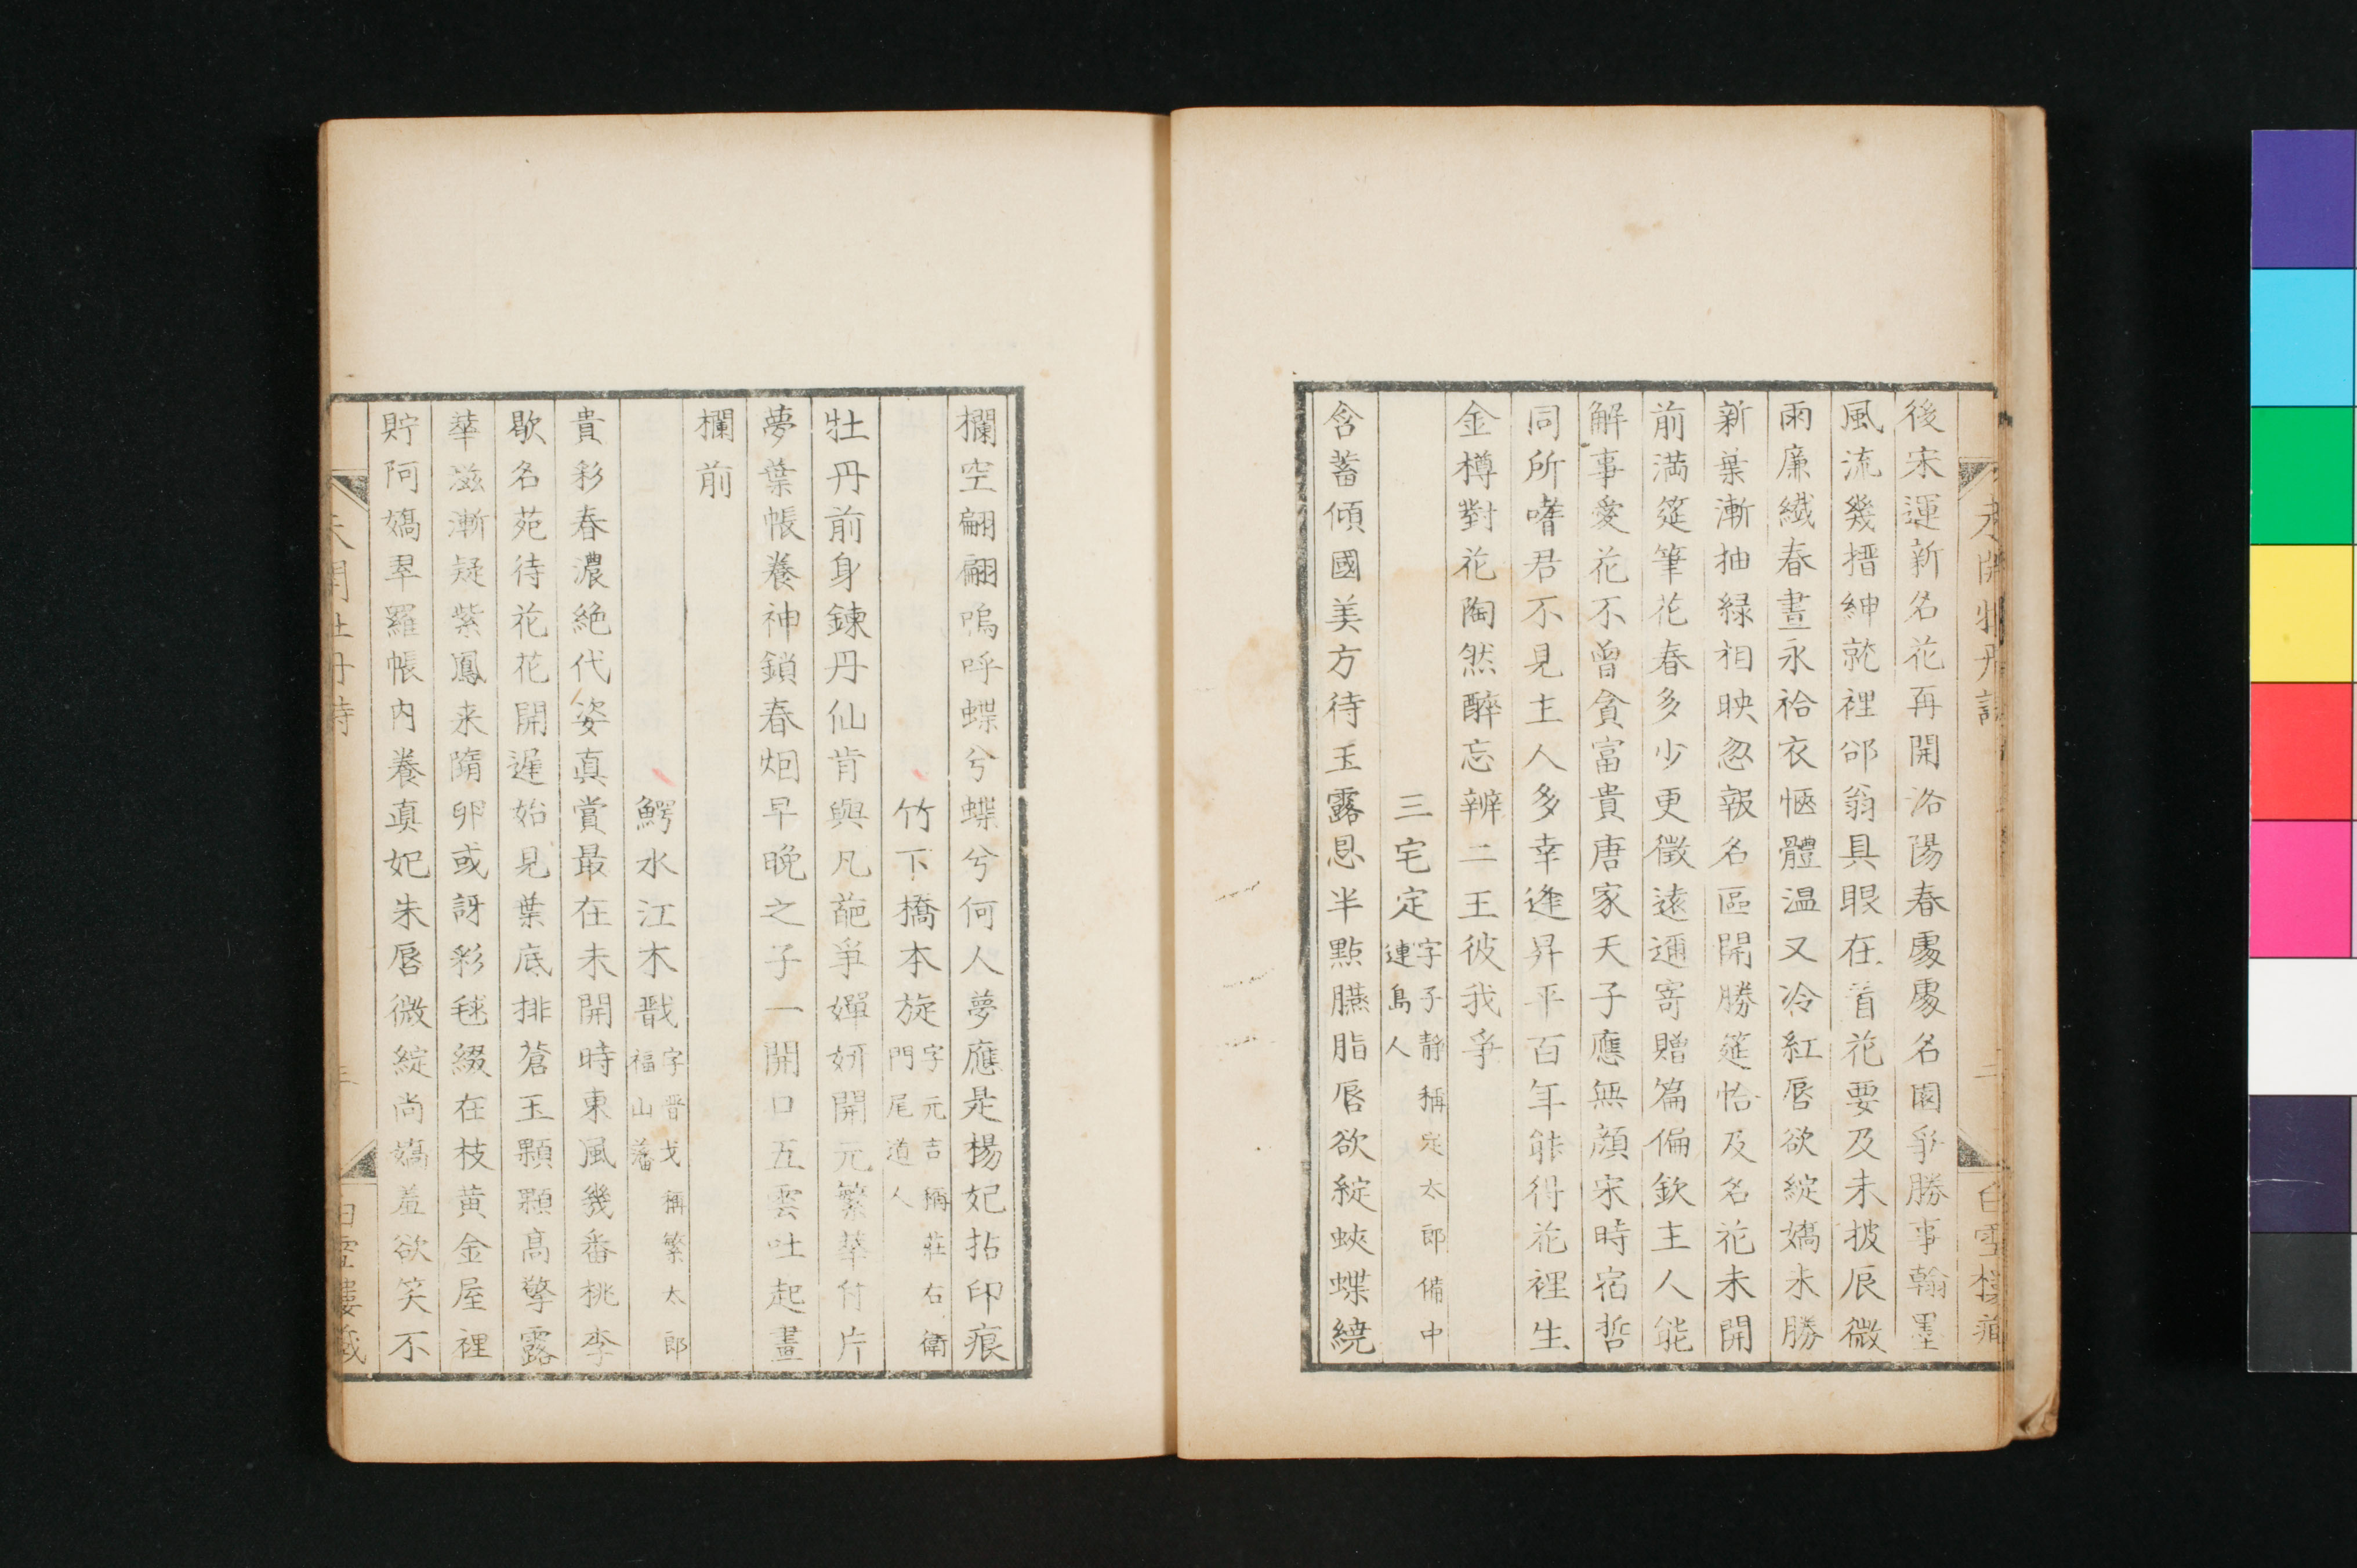 未開牡丹詩
二
白雪樓蔵
後宋運新名花再開洛陽春處處名園爭勝事翰墨
風流幾搢紳就裡邵翁具眼在看花要及未披辰微
雨簾纎春晝永袷衣愜體温又冷紅唇欲綻嬌未勝
新葉漸抽緑相映忽報名區開勝筵恰及名花未開
前満筵筆花春多少更徴遠邇寄贈篇偏欽主人能
解事愛花不曽貪富貴唐家天子應無顔宋時宿哲
同所嗜君不見主人多幸逢昇平百年能得花裡生
金樽對花陶然醉忘辨二王彼我爭
三宅定字子静稱定太郎備中連島人
含蓄傾國美方待玉露恩半點臙脂唇欲綻蛺蝶繞
欄空翩翩嗚呼蝶兮蝶兮何人夢應是楊妃拈印痕
竹下橋本旋字元吉稱莊右衛門尾道人
牡丹前身鍊丹仙肯與凡葩爭嬋妍開元繁華付片
夢葉帳養神鎖春烟早晩之子一開口五雲吐起畫
欄前
鰐水江木戩字晋戈稱繁太郎福山藩
貴彩春濃絶代姿真賞最在未開時東風幾番桃李
歇名苑待花花開遲始見葉底排蒼玉顆顆髙擎露
華滋漸疑紫鳳来隋卵或訝彩毬綴在枝黄金屋裡
貯阿嬌翠羅帳内養真妃朱唇微綻尚嬌羞欲笑不
未開牡丹詩
三
白雪樓蔵